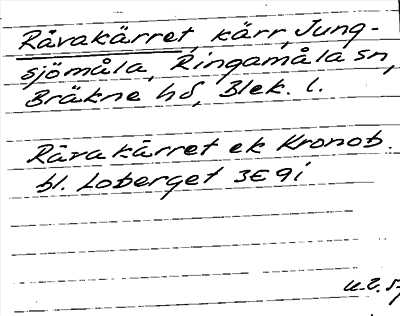 Råvakärret, kärr, Jung-
sjömåla, Ringamåla sn,
Bräkne hd, Blek. l.
Råvakärret ek Kronob.
bl. Loberget 3E9i